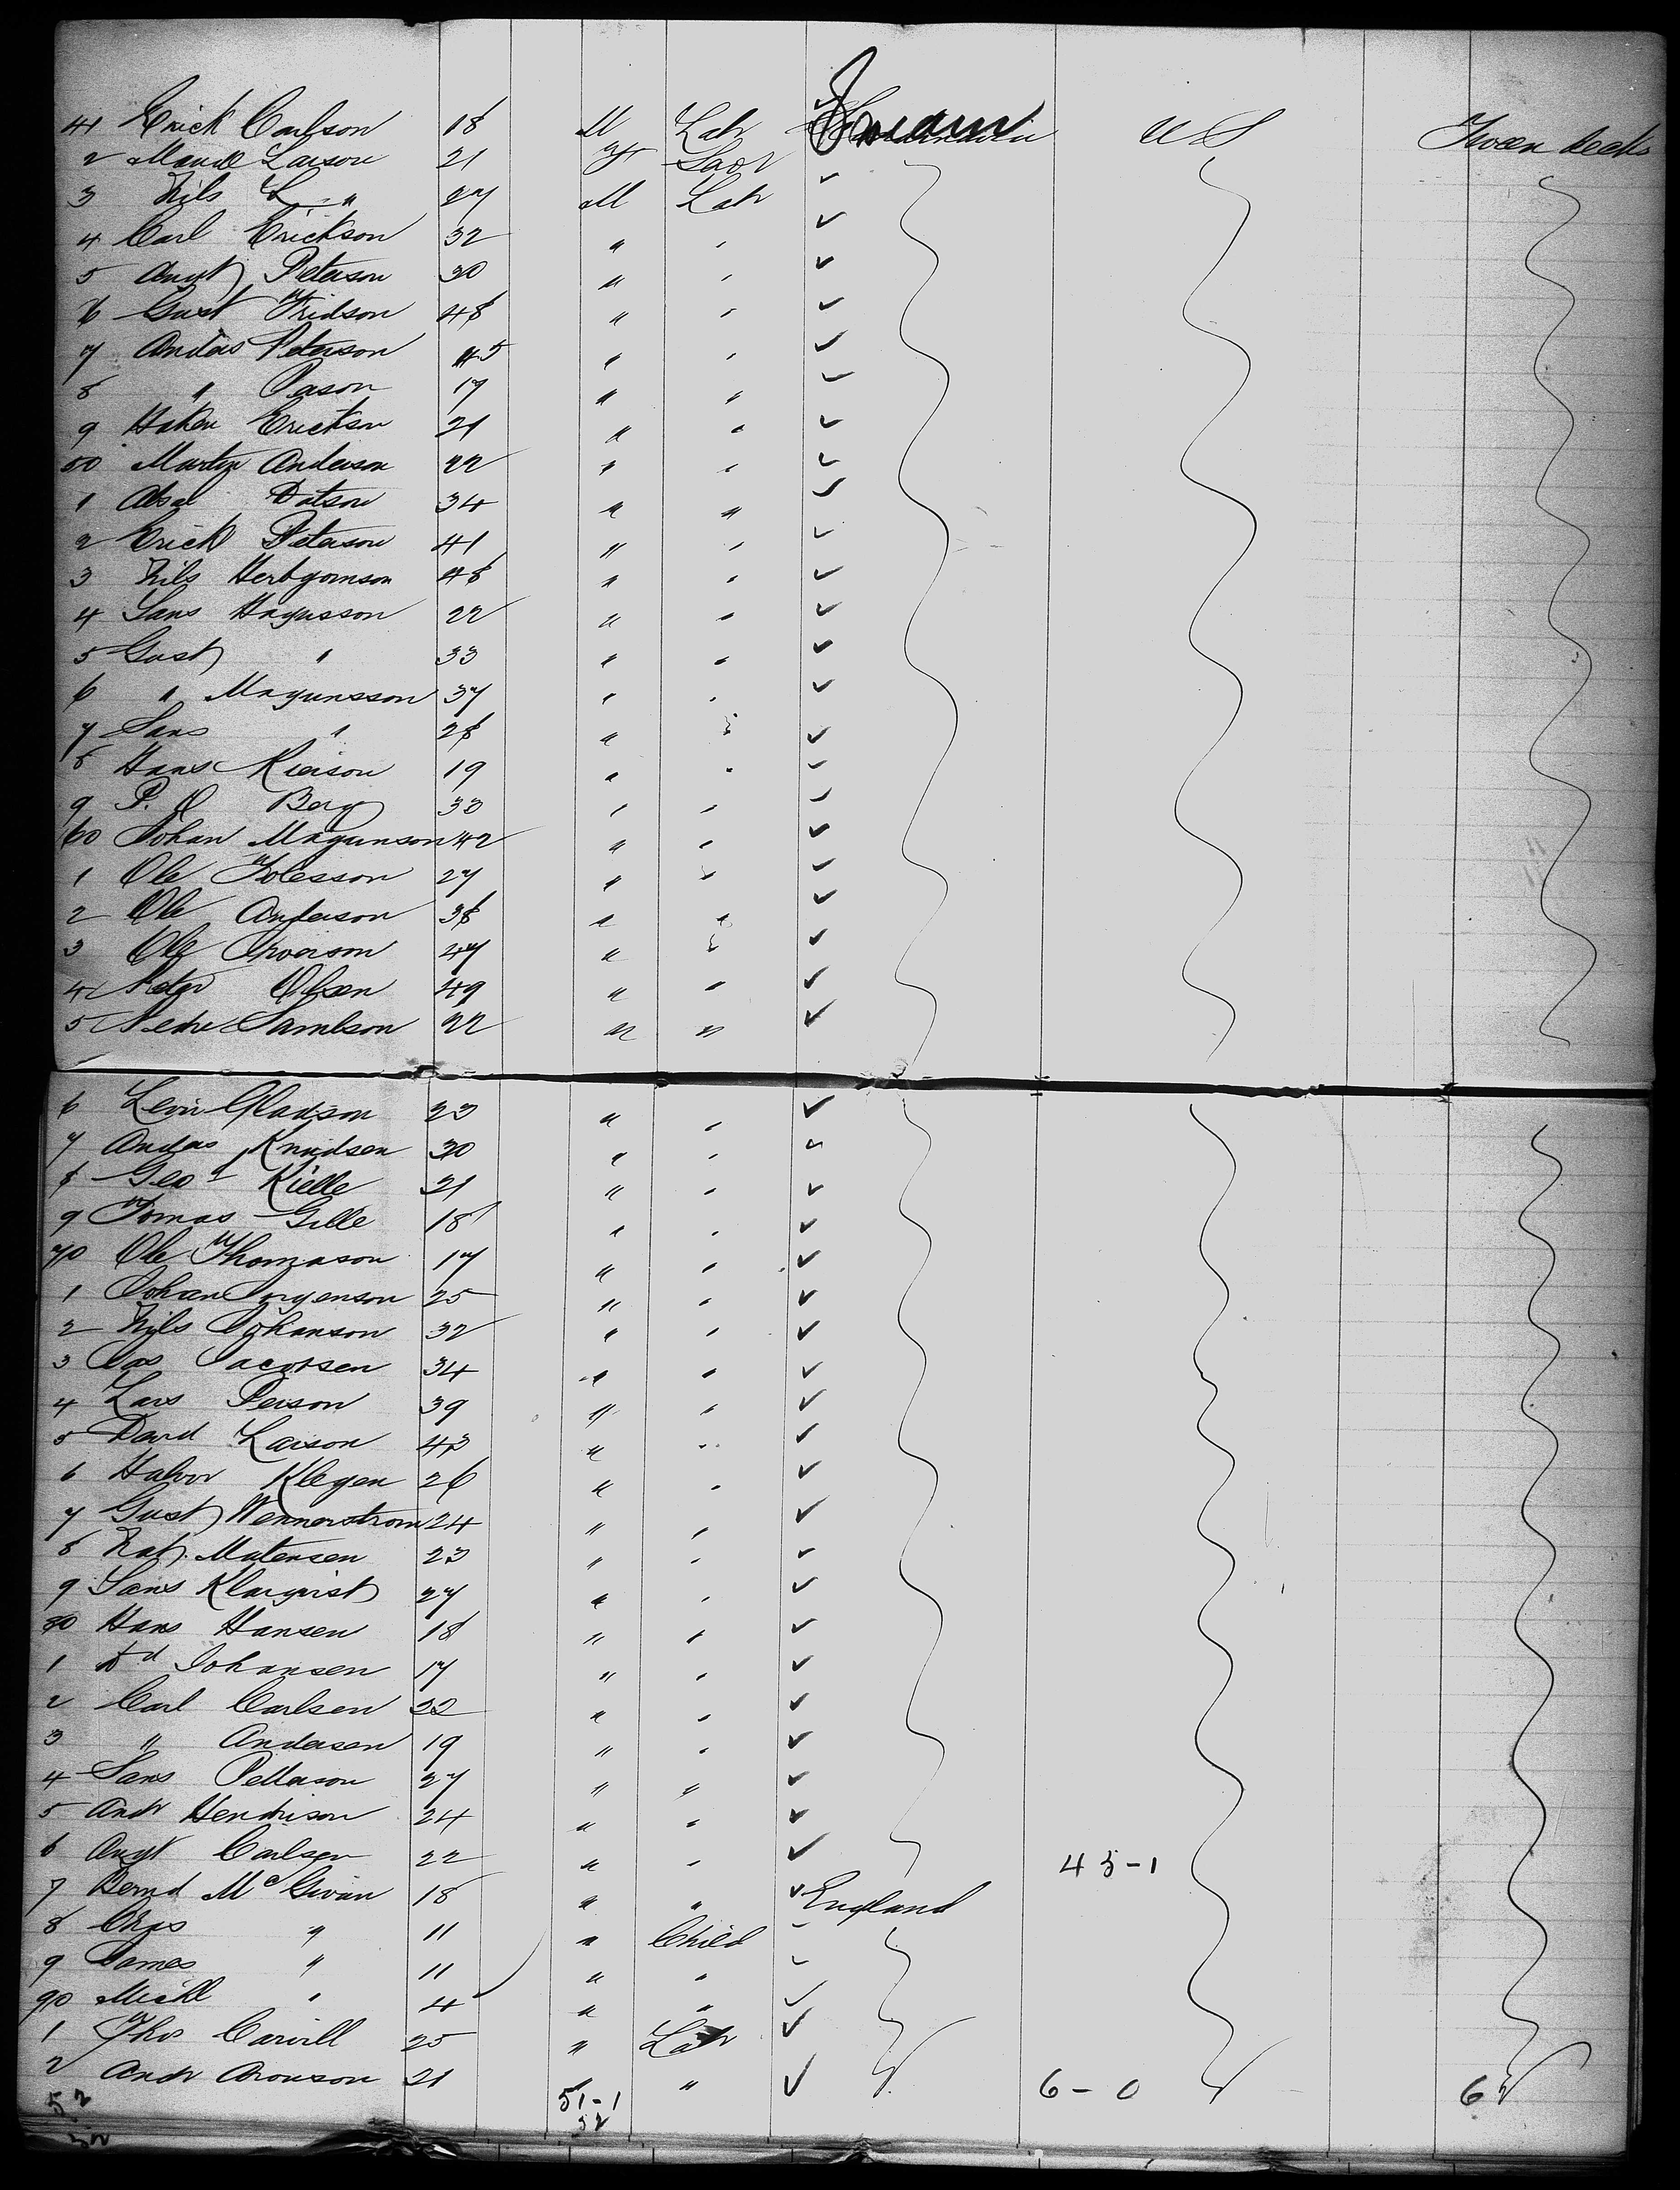 41 Erick Carlson 18 M Lab US Tween decks
2 Maud Larson 21 F
3 Nils L " 27 M Lab
4 Carl Erickson 32 " "
5 Augt Peterson 30 " "
6 Gust Fridson 48 " "
7 Anders Peterson 45 " "
8 " Pason 19 " "
9 Haken Erickson 21 " "
50 Martin Anderson 22 " "
1 Absal Datson 34 " "
2 Erick Peterson 41 " "
3 Nils Herbgomson 48 " "
4 Lans Hagusson 22 " "
5 Gust " 33 " "
6 " Magunsson 37 " "
7 Lans " 28 " "
8 Hans Rierson 19 " "
9 P. O Berg 33 " "
60 Johan Magunson 42 " "
1 Ole Tolesson 27 " "
2 Ole Anderson 38 " "
3 Ole Iverson 47 " "
4 Peter Olsen 49 " "
5 Pedre Samlson 22 " "
6 Levin Gladson 23 " "
7 Andas Knudsen 30 " "
8 Geo Kielle 21 " "
9 Tomas Gille 18 " "
70 Ole Thomason 17 " "
1 Johan Jorgenson 25 " "
2 Nils Johanson 32 " "
3 Jas Jacobsen 34 " "
4 Lars Person 39 " "
5 David Larson 43 " "
6 Halvor Klegen 26 " "
7 Gust Wennerstrom 24 " "
8 Nat. Matensen 23 " "
9 Lans Klarqvist 27 " "
80 Hans Hansen 18 " "
1 Ed Johansen 17 " "
2 Carl Carlsen 22 " "
3 " Andersen 19 " "
4 Lans Pellarson 27 " "
5 Andr Hendrison 24 " "
6 Augt Carlsen 22 " " 45-1
7 Bernd McGivan 18 " " England
8 Chas " 11 " Child
9 James " 11 " "
90 Michl " 4 " "
1 Thos Carvill 25 " Lab
2 Andr Aronson 21 " "
52 51-1 6-0
52